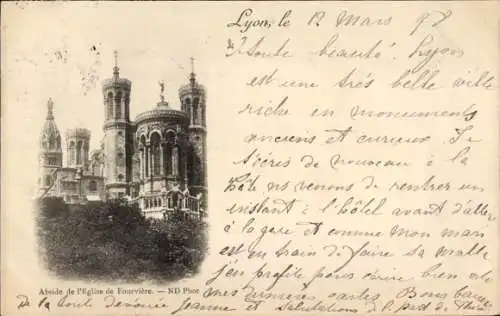 Lyon, le 12 Mars 98
Toute beauté. Lyon
est une très belle ville
riche en monuments
anciens et curieux. Je
à la
hâte ns venons de rentrer un
instant à l'hôtel avant d'aller
à la gare et comme mon mari
est en train de faire sa malle
j'en profite pour écrire bien vite
mes dernières cartes Bons baisers
de la toute dévouée Jeanne et salutations de P.
Abside de l'Eglise de Fourvière. — ND Phot